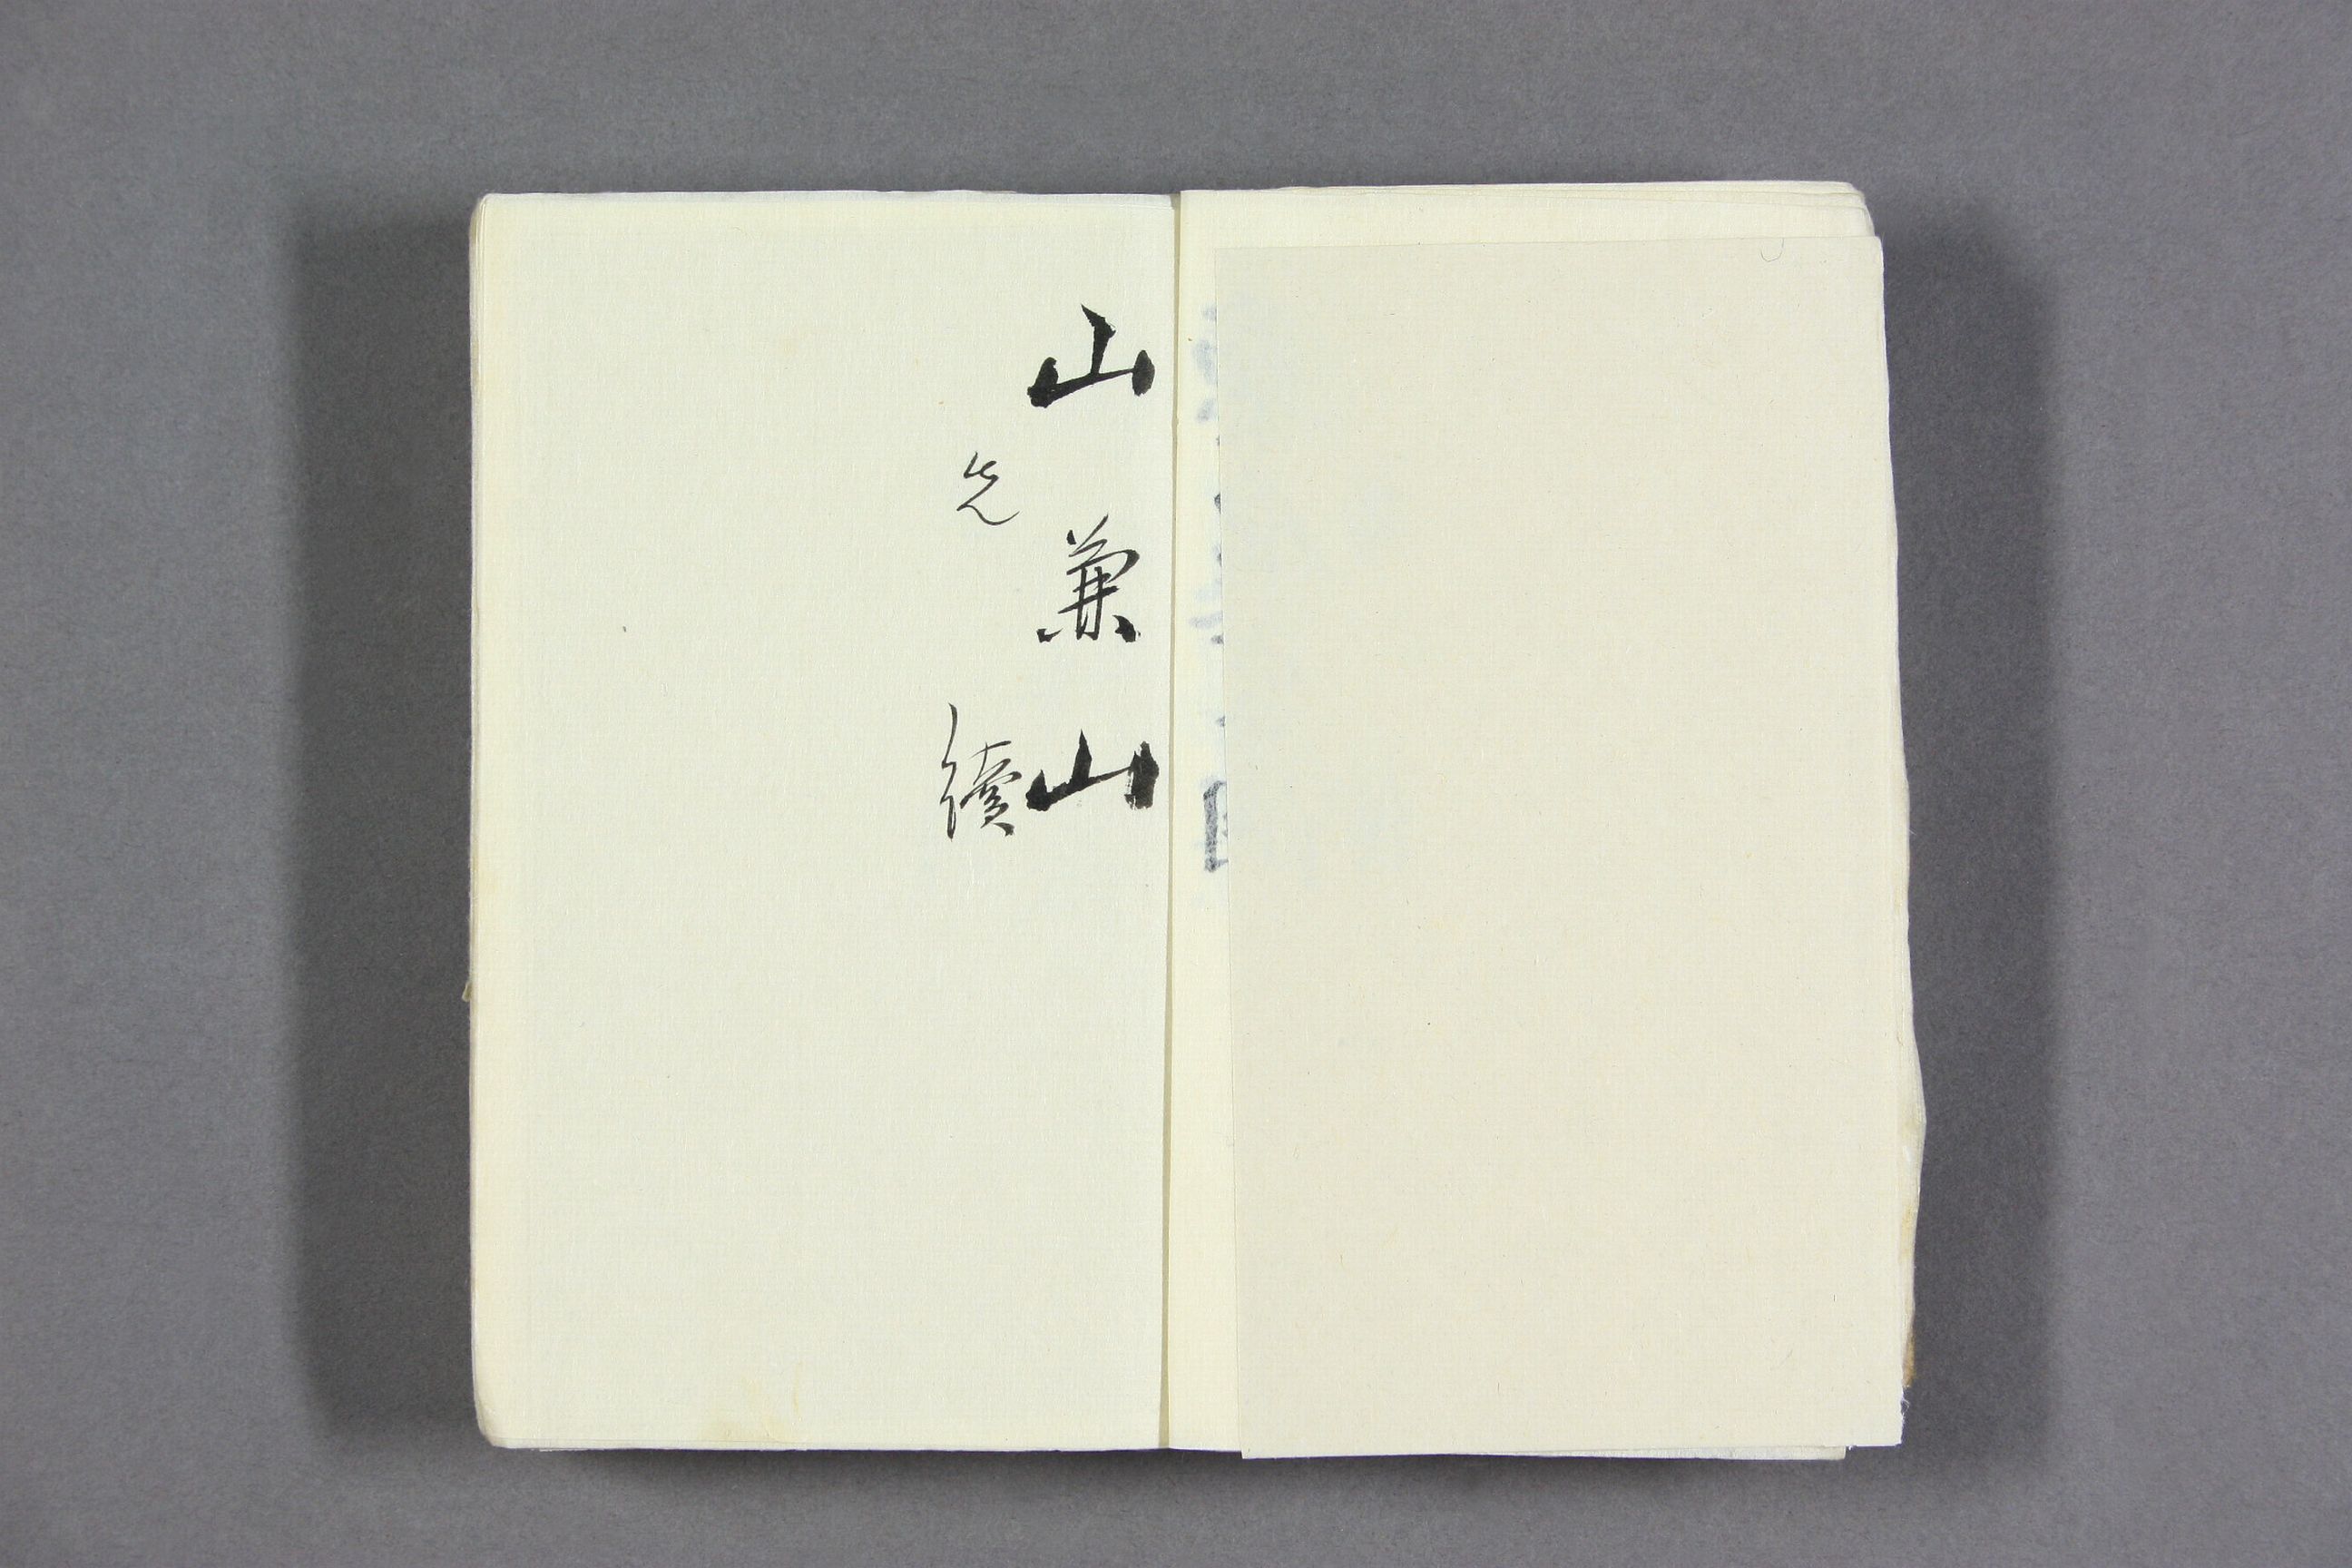 山兼山
先續